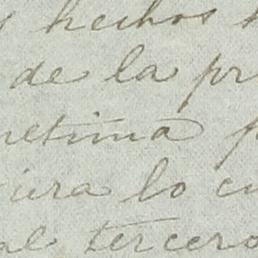 hechos
de la pr
netima
ura lo cu
al tercero